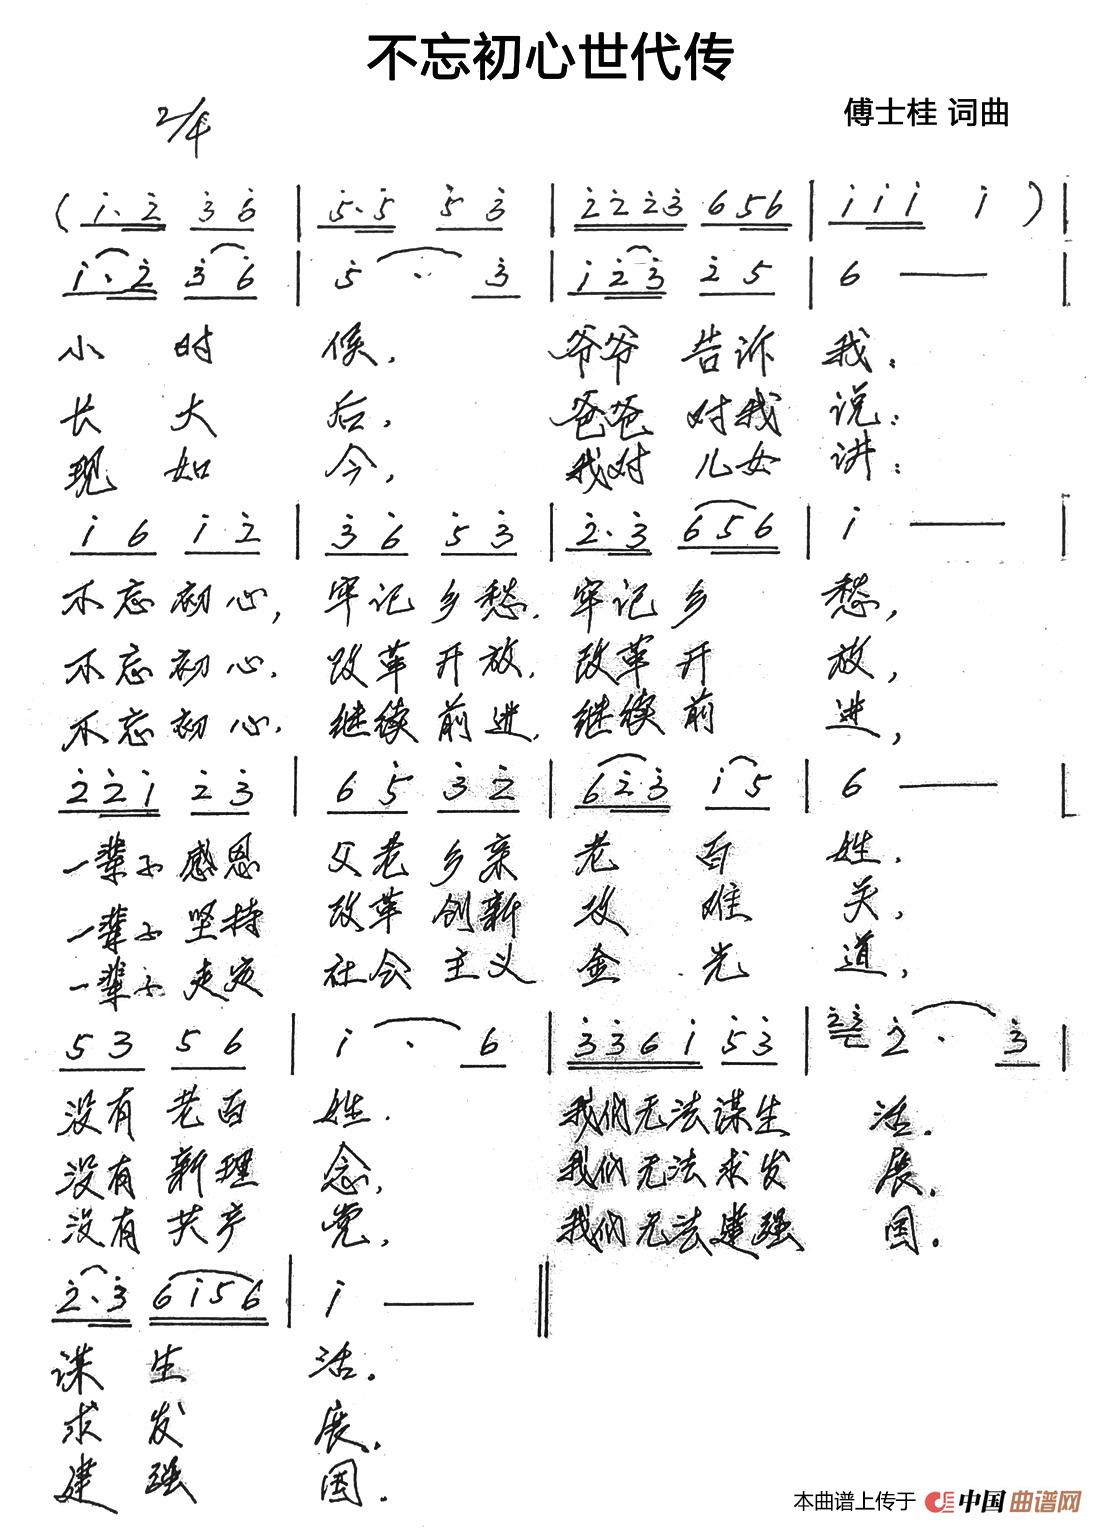 不忘初心世代传
2/4
傅士桂 词曲
( i· 2 3 6 | 5· 5 5 3 | 2 2 2 3 6 5 6 | i i i i ) |
i· 2 3 6 | 5 · 3 | i 2 3 2 5 | 6 — |
小时候， 爷爷告诉我：
长大后， 爸爸对我说：
现如今， 我对儿女讲：
i 6 i 2 | 3 6 5 3 | 2· 3 6 5 6 | i — |
不忘初心，牢记乡愁，牢记乡愁，
不忘初心，改革开放，改革开放，
不忘初心，继续前进，继续前进，
2 2 i 2 3 | 6 5 3 2 | 6 2 3 i 5 | 6 — |
一辈子感恩父老乡亲老百姓，
一辈子坚持改革创新攻难关，
一辈子走定社会主义金光道，
5 3 5 6 | i · 6 | 3 3 6 i 5 3 | 2 3 2 · 3 |
没有老百姓．我们无法谋生活．
没有新理念，我们无法求发展．
没有共产党，我们无法建强国．
2· 3 6 i 5 6 | i — ‖
谋生活．
求发展．
建强国．
本曲谱上传于 中国曲谱网